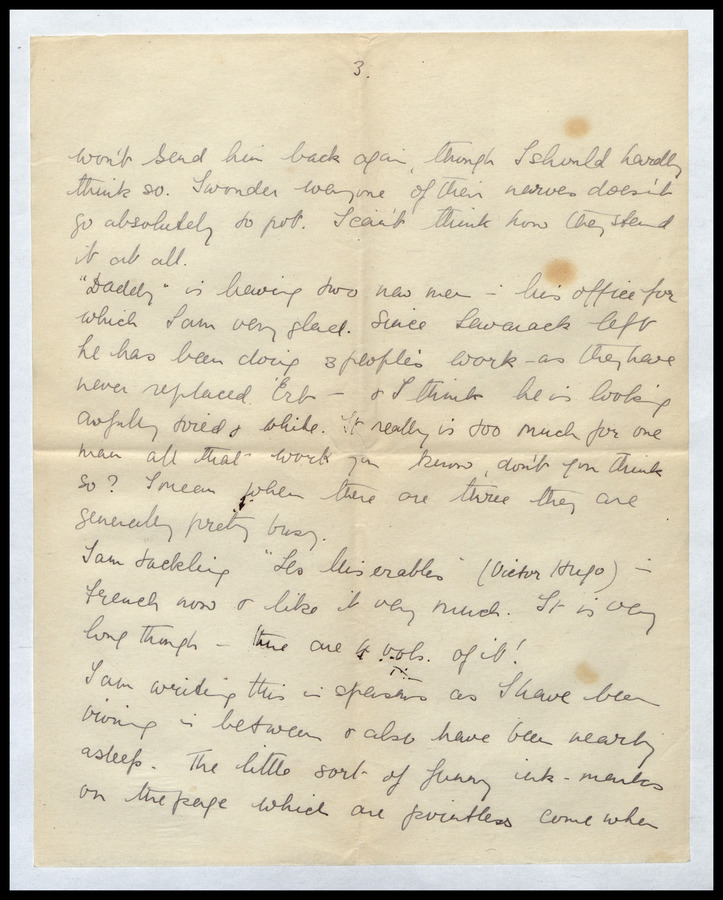 3.
won't send him back again, though I should hardly
think so. I wonder everyone of their nerves doesn't
go absolutely to pot. I can't think how they stand
it at all.
"Daddy" is having two new men in his office for
which I am very glad. Since left
he has been doing 3 people's work – as they have
never replaced 'Erb – & I think he is looking
awfully tired & white. It really is too much for one
man all that work you know, don't you think
so? I mean when there are three they are
generally pretty busy.
I am tackling "Les Miserables" (Victor Hugo) in
French now & like it very much. It is very
long though – there are 4 vols. of it!
I am writing this in spasms as I have been
in between & also have been nearly
asleep. The little sort of funny ink-marks
on the page which are pointless come when